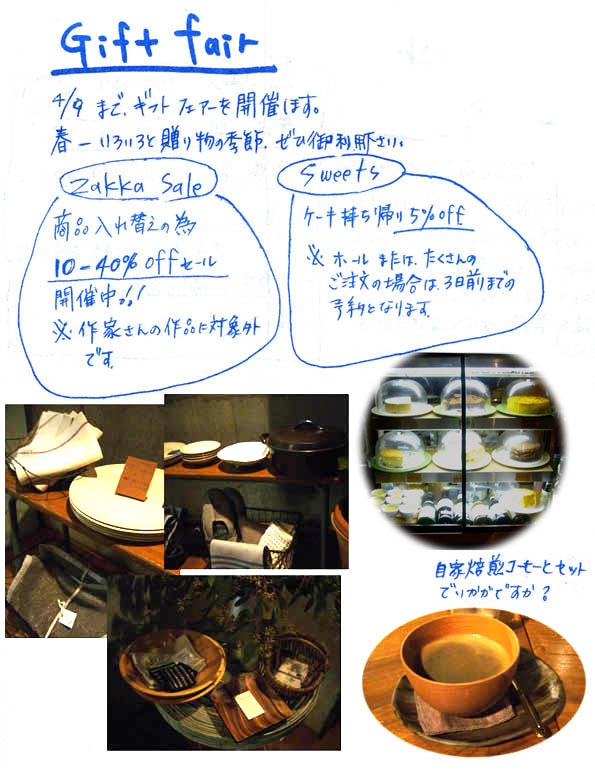 Gift fair
4/9 まで、ギフトフェアーを開催します。
春ーいろいろと贈り物の季節、ぜひ御利用下さい。
Zakka Sale
商品入れ替えの為
10-40% offセール
開催中!!
※作家さんの作品は対象外
です。
Sweets
ケーキ持ち帰り 5% off
※ホールまたは、たくさんの
ご注文の場合は、3日前までの
予約となります。
自家焙煎コーヒーとセット
でいかがですか?